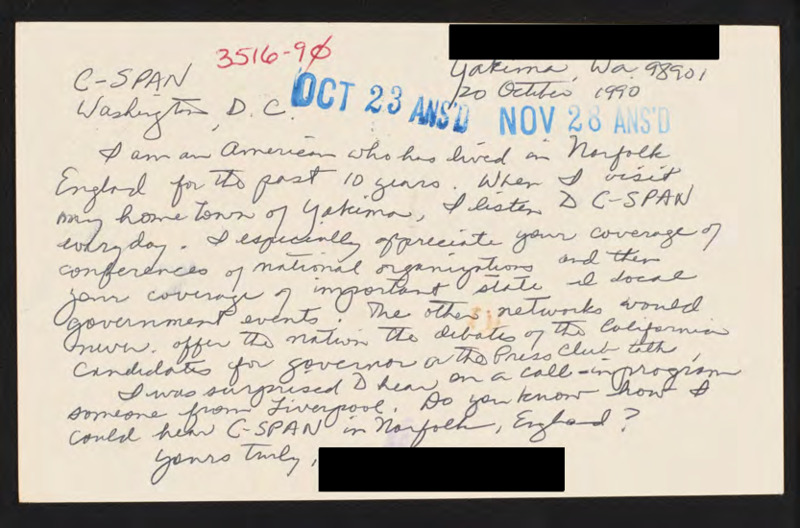 3516-90
C-SPAN
Washington, D.C.
Yakima, Wa. 98901
20 October 1990
OCT 23 ANS'D NOV 28 ANS'D
I am an American who has lived in Norfolk
England for the past 10 years. When I visit
my home town of Yakima, I listen to C-SPAN
everyday. I especially appreciate your coverage of
conferences of national organizations and then
your coverage of important state & local
government events. The other networks would
never offer the nation the debates of the California
candidates for governor or the Press Club talk.
I was surprised to hear on a call-in program
someone from Liverpool. Do you know how I
could hear C-SPAN in Norfolk, England?
Yours truly,